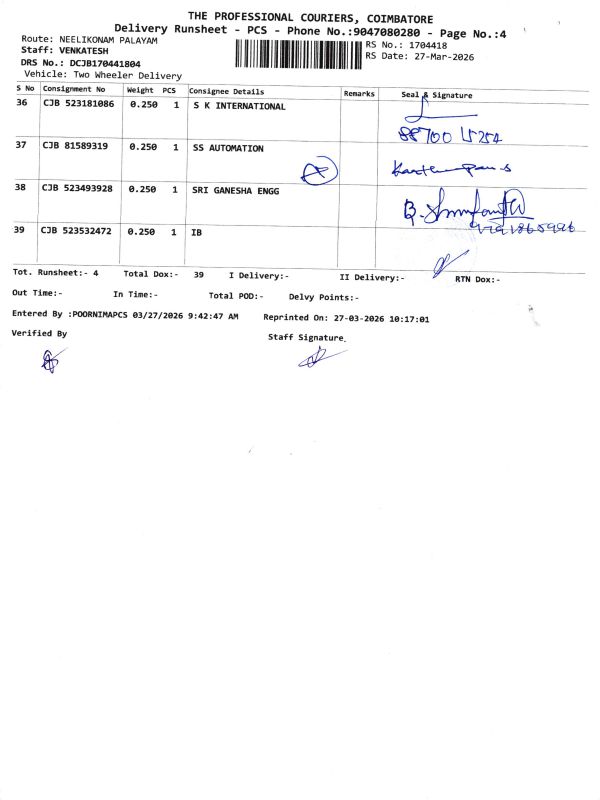 THE PROFESSIONAL COURIERS, COIMBATORE
Delivery Runsheet - PCS - Phone No.:9047080280 - Page No.:4
Route: NEELIKONAM PALAYAM
RS No.: 1704418
Staff: VENKATESH
RS Date: 27-Mar-2026
DRS No.: DCJB170441804
Vehicle: Two Wheeler Delivery
S No Consignment No Weight PCS Consignee Details Remarks Seal & Signature
36 CJB 523181086 0.250 1 S K INTERNATIONAL
88700 15254
37 CJB 81589319 0.250 1 SS AUTOMATION
38 CJB 523493928 0.250 1 SRI GANESHA ENGG
39 CJB 523532472 0.250 1 IB
Tot. Runsheet:- 4 Total Dox:- 39 I Delivery:- II Delivery:- RTN Dox:-
Out Time:- In Time:- Total POD:- Delvy Points:-
Entered By :POORNIMAPCS 03/27/2026 9:42:47 AM Reprinted On: 27-03-2026 10:17:01
Verified By
Staff Signature